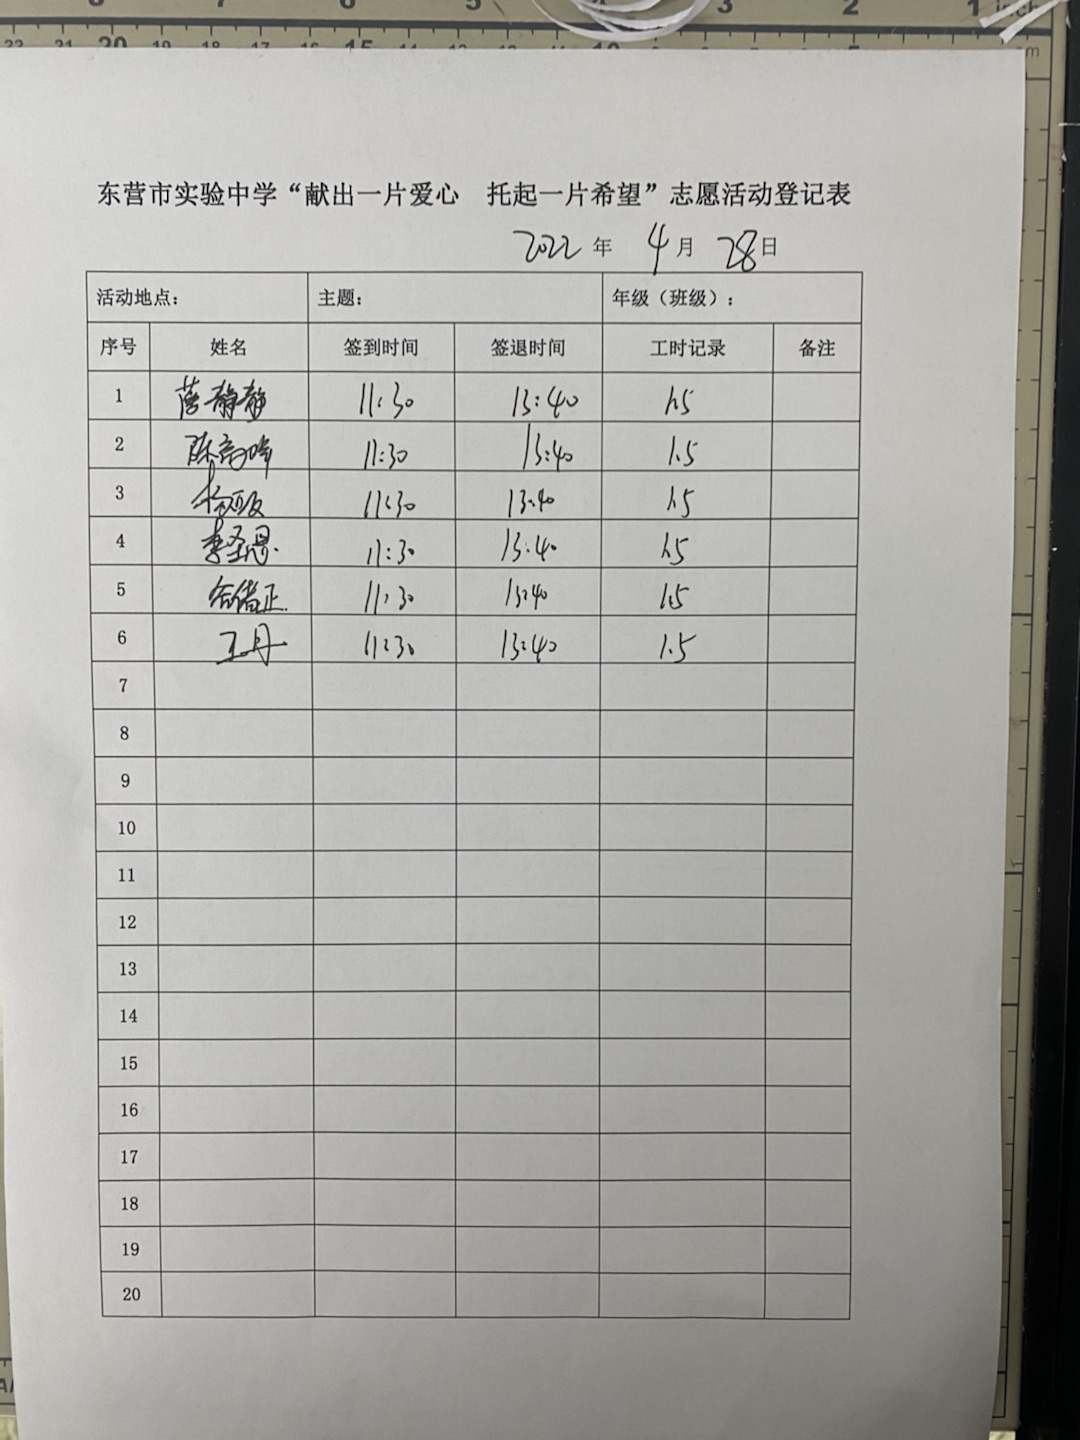 8 7 6 5 4 3 2 1 inch
22 21 20 19 18 17 16 15 14 13 12 11 10
cm
东营市实验中学“献出一片爱心 托起一片希望”志愿活动登记表
2022 年 4 月 28 日
活动地点： 主题： 年级（班级）：
序号 姓名 签到时间 签退时间 工时记录 备注
1 静静 11:30 13:40 1.5
2 陈 11:30 13:40 1.5
3 杨 11:30 13:40 1.5
4 李圣恩 11:30 13:40 1.5
5 11:30 13:40 1.5
6 王丹 11:30 13:40 1.5
7
8
9
10
11
12
13
14
15
16
17
18
19
20